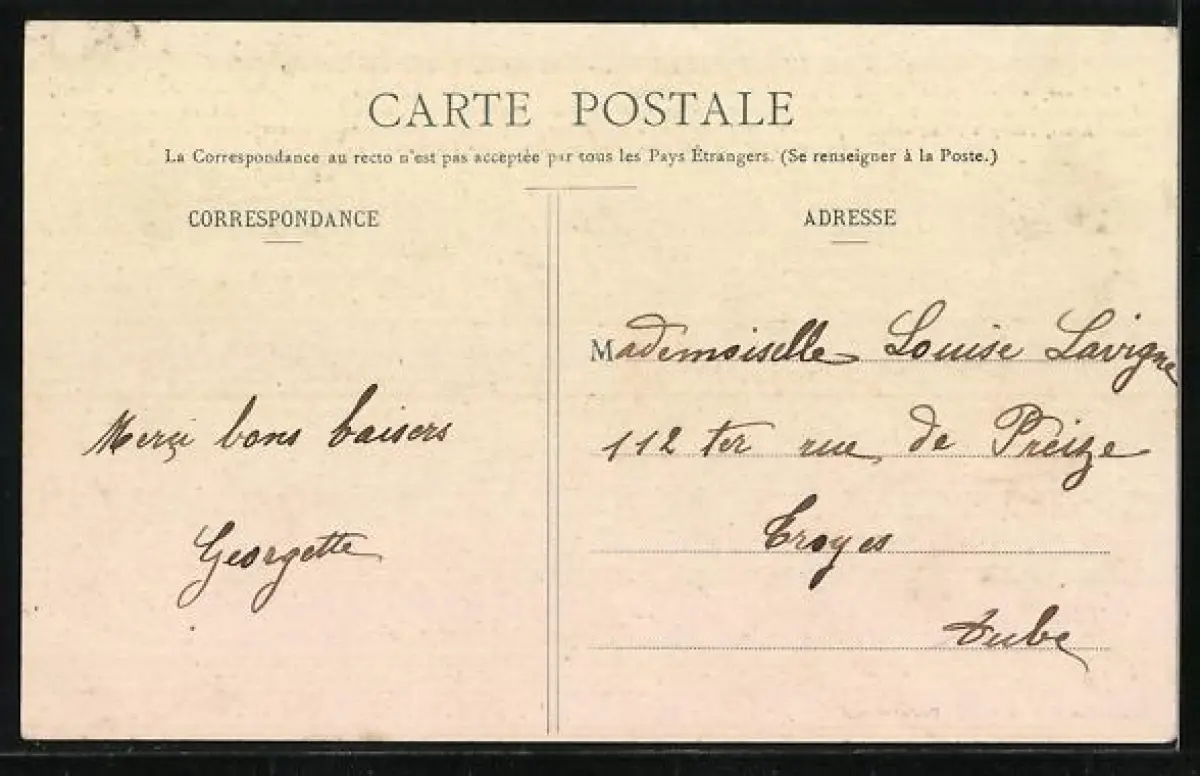 CARTE POSTALE
La Correspondance au recto n'est pas acceptée par tous les Pays Étrangers. (Se renseigner à la Poste.)
CORRESPONDANCE
Merçi bons baisers
Georgette
ADRESSE
Mademoiselle Louise Lavigne
112 ter rue de Preize
Troyes
Aube